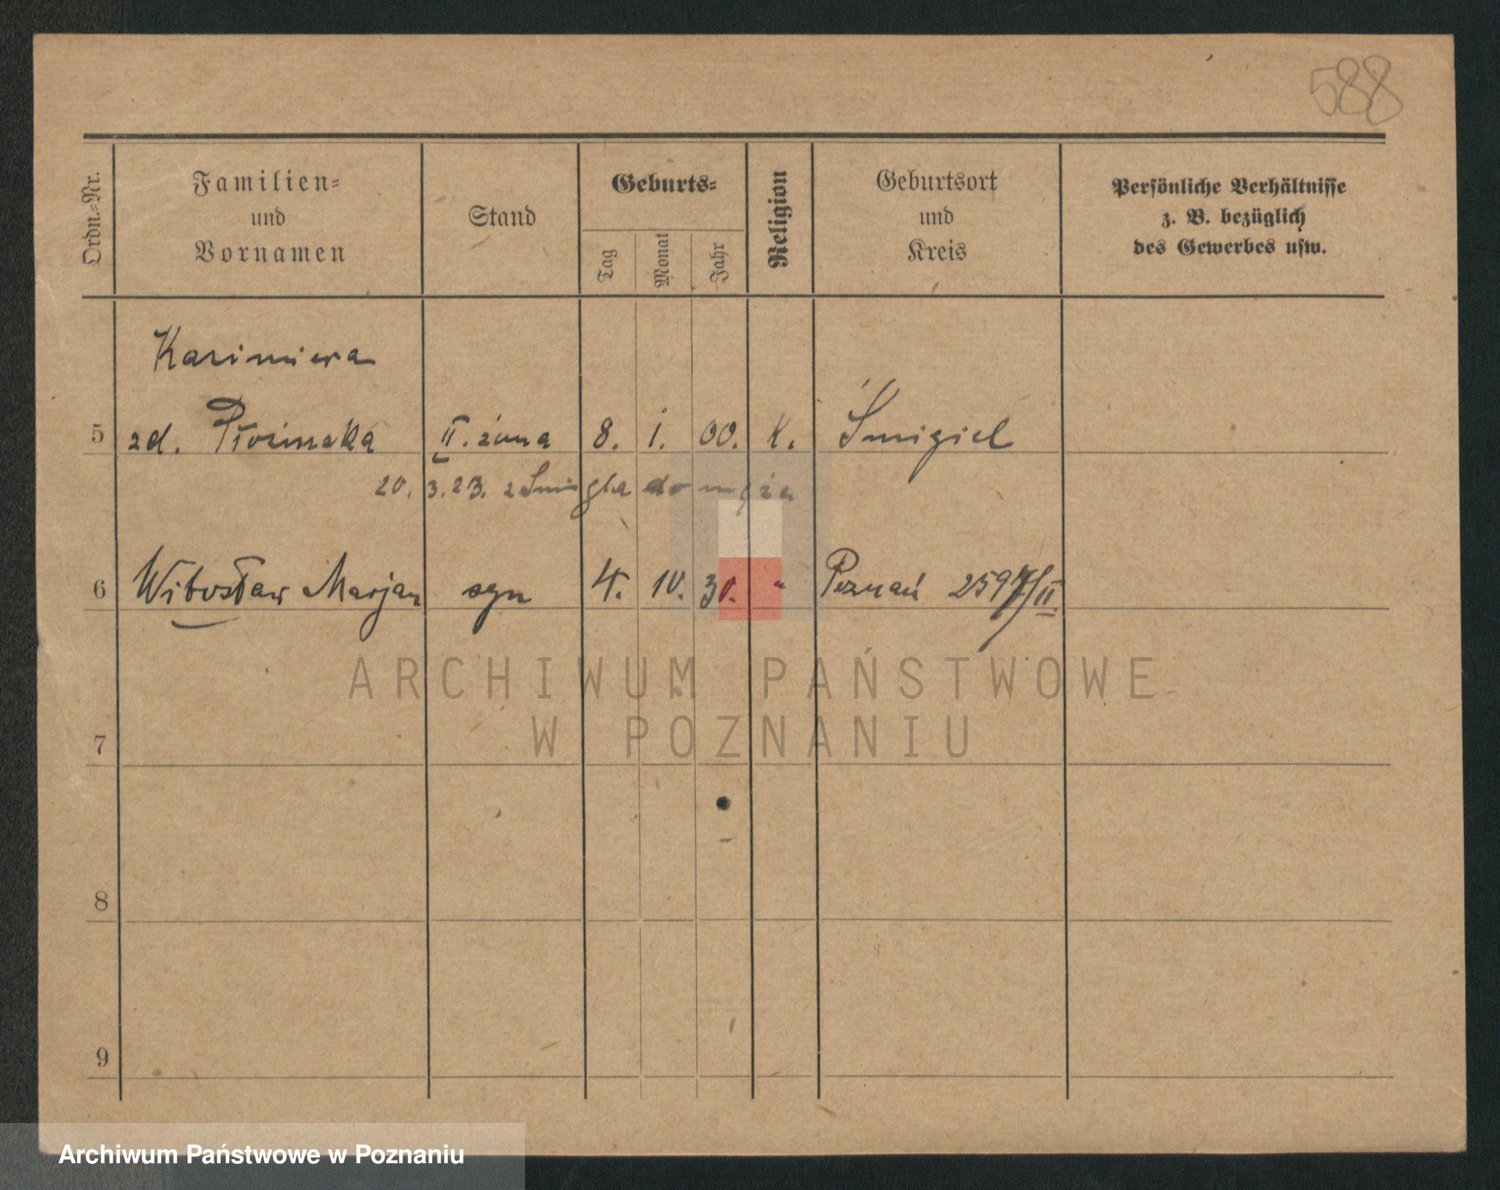 588
Ordn.=Nr.
Familien=
und
Vornamen
Stand
Geburts=
Tag
Monat
Jahr
Religion
Geburtsort
und
Kreis
Persönliche Verhältnisse
z. B. bezüglich
des Gewerbes usw.
Kazimiera
5 zd. II. żona 8. 1. 00. K. Śmigiel
20. 3. 23. z Śmigla do męża
6 Witosław Marjan syn 4. 10. 30. " Poznań 2597/II
ARCHIWUM PAŃSTWOWE
W POZNANIU
7
8
9
Archiwum Państwowe w Poznaniu